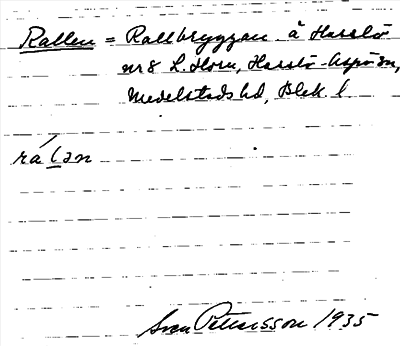 Rallen = Rallbryggan å Hasslö
nr 8 L. Horn, Hasslö-Aspö sn,
Medelstads hd, Blek. l.
rálən
Sven Petersson 1935